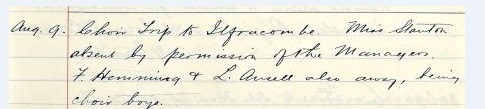 Aug. 9. Choir Trip to Ilfracombe. Miss Stanton
absent by permission of the Managers.
F. Hemming & L. Ansell also away, being
choir boys.